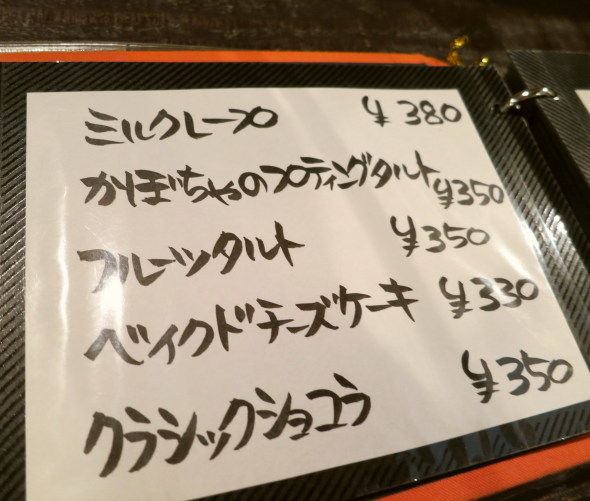 ミルクレープ ¥380
かぼちゃのプティングタルト ¥350
フルーツタルト ¥350
ベイクドチーズケーキ ¥330
クラシックショコラ ¥350